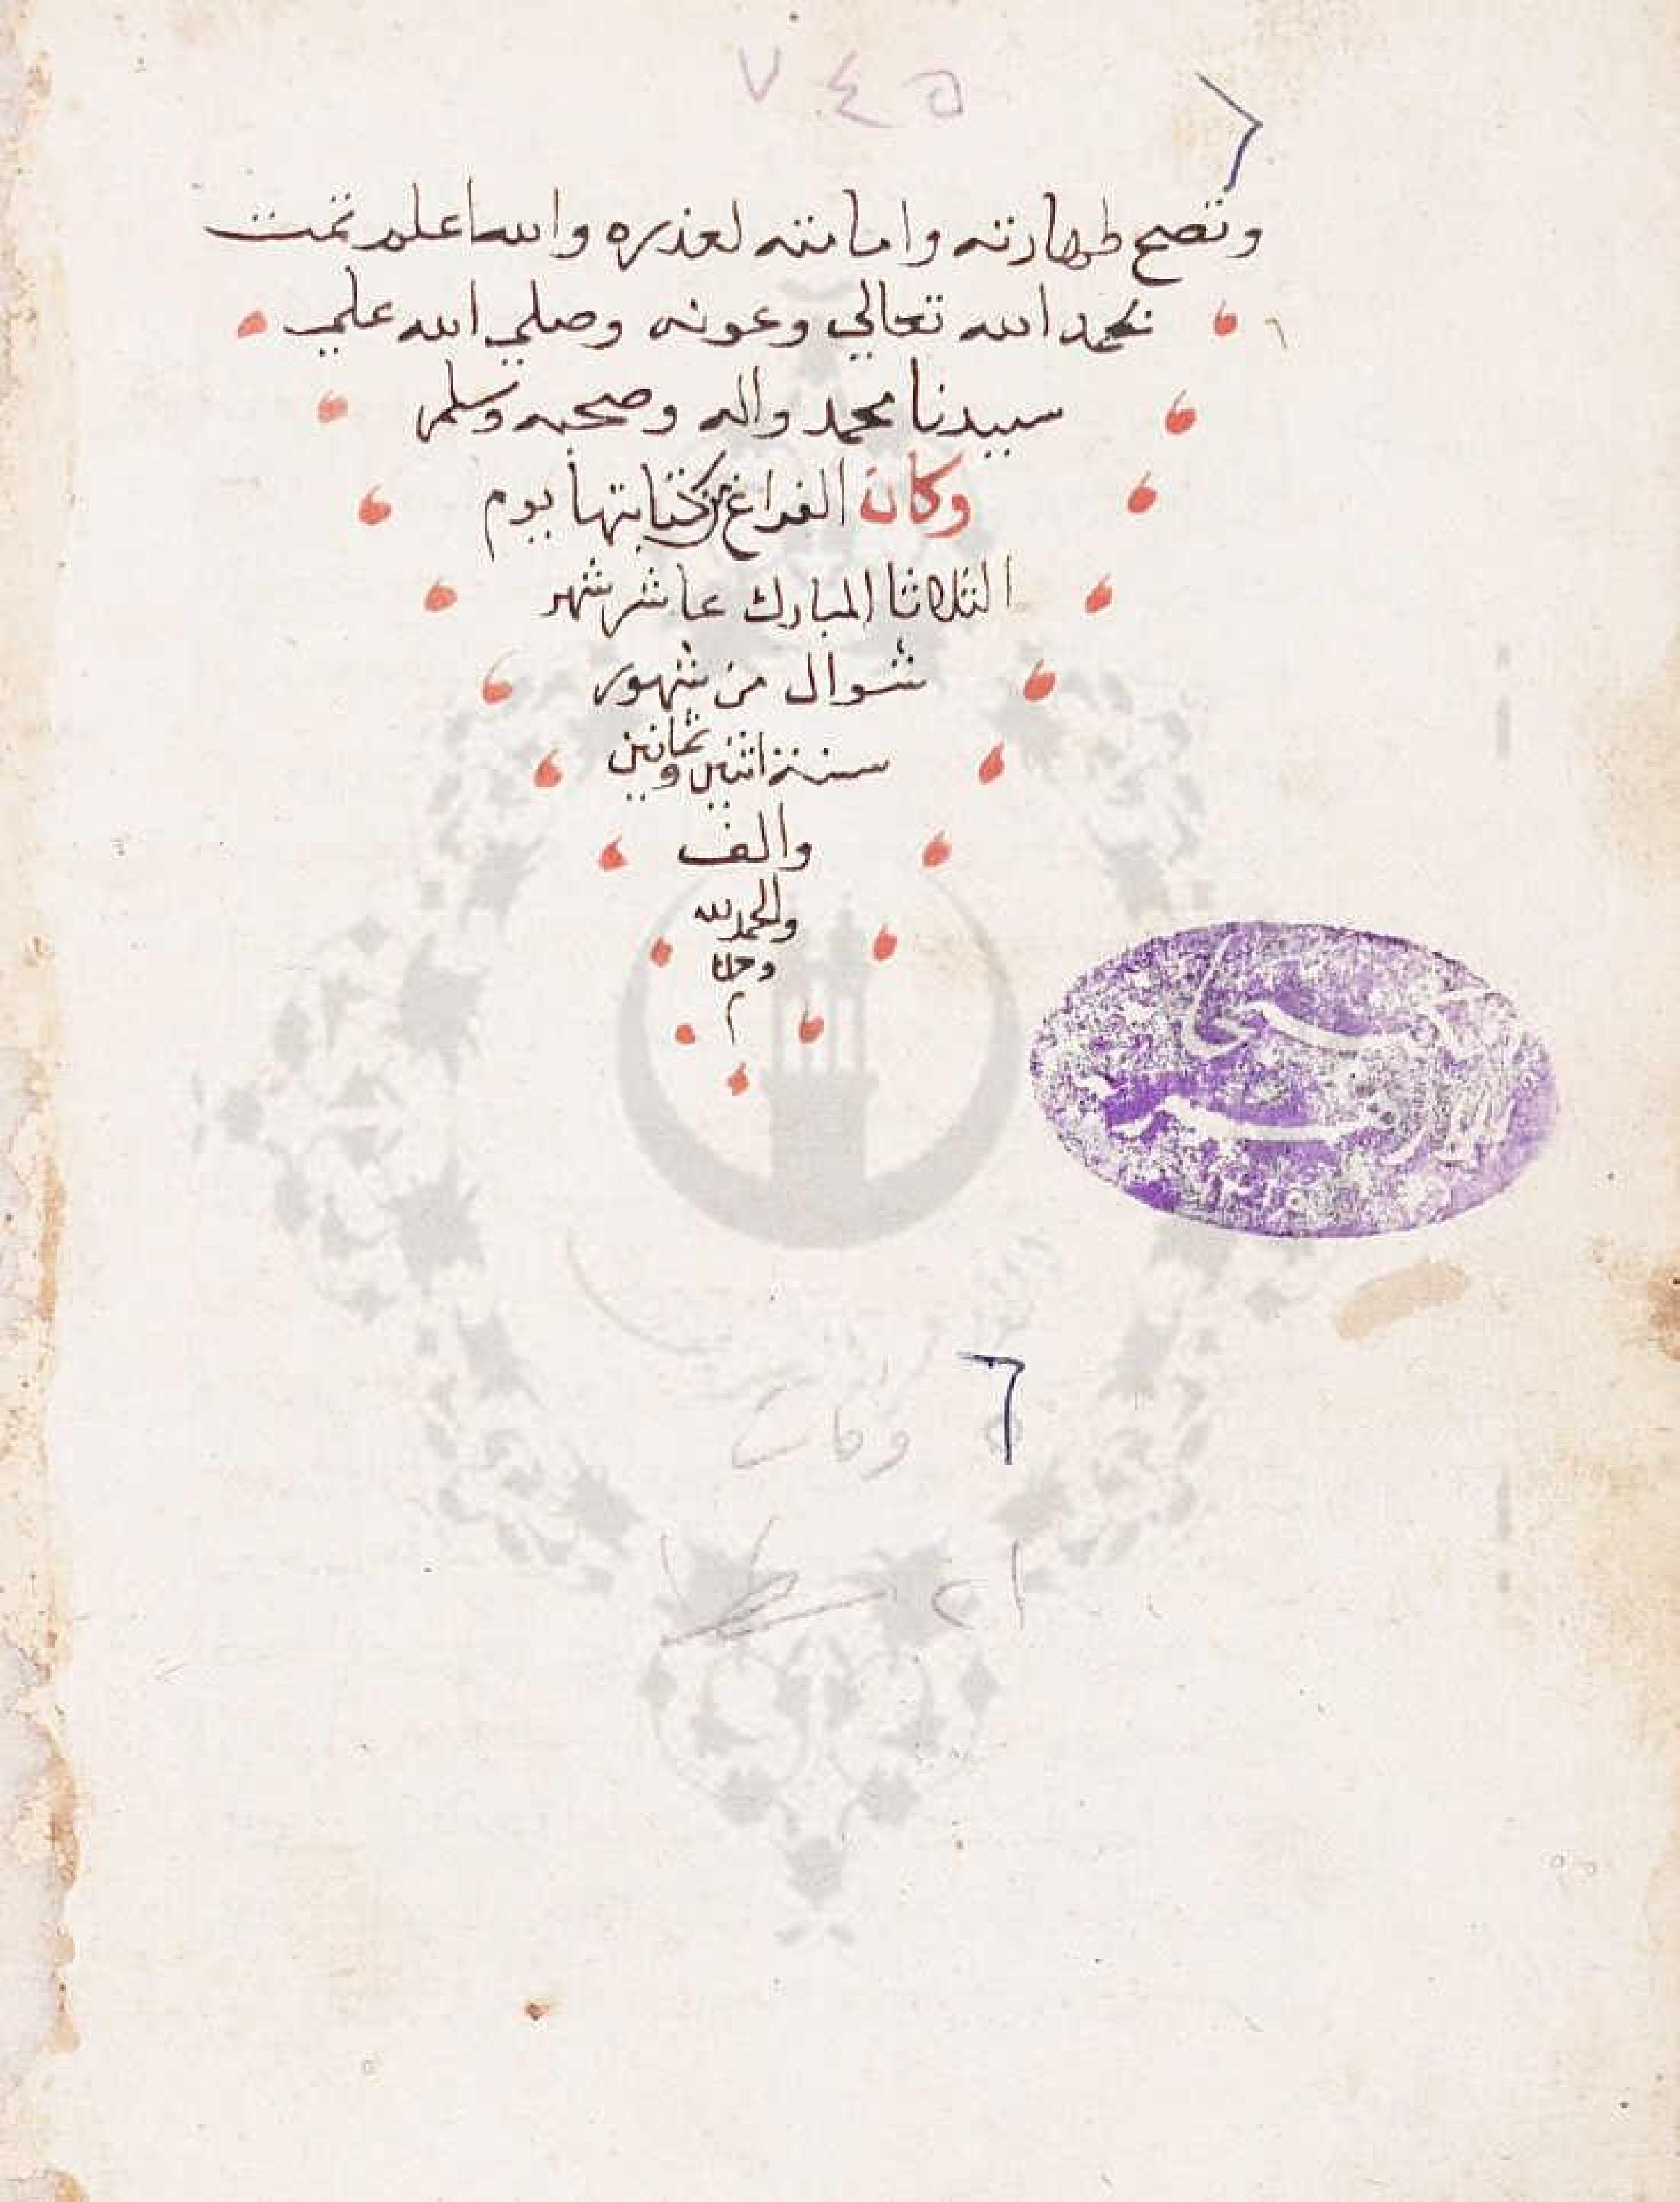 ٧٤٥
وتصح طهارته وامامته لعذره والله اعلم تمت
بحمد الله تعالي وعونه وصلي الله علي
سيدنا محمد واله وصحبه وسلم
وكان الفراغ من كتابتها يوم
الثلاثا المبارك عاشر شهر
شوال من شهور
سنة اثنين وثمانين
والف
والحمد لله
وحده
م